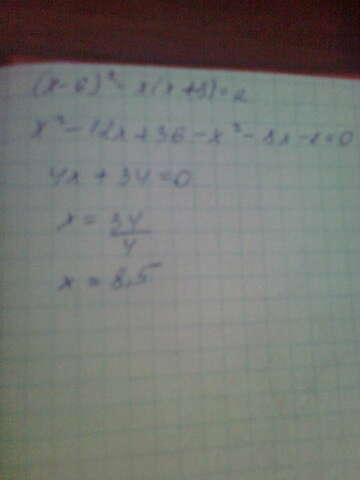 (x-6)² - x(x+8) = 2
x² - 12x + 36 - x² - 8x - 2 = 0
4x + 34 = 0
x = 34/4
x = 8,5